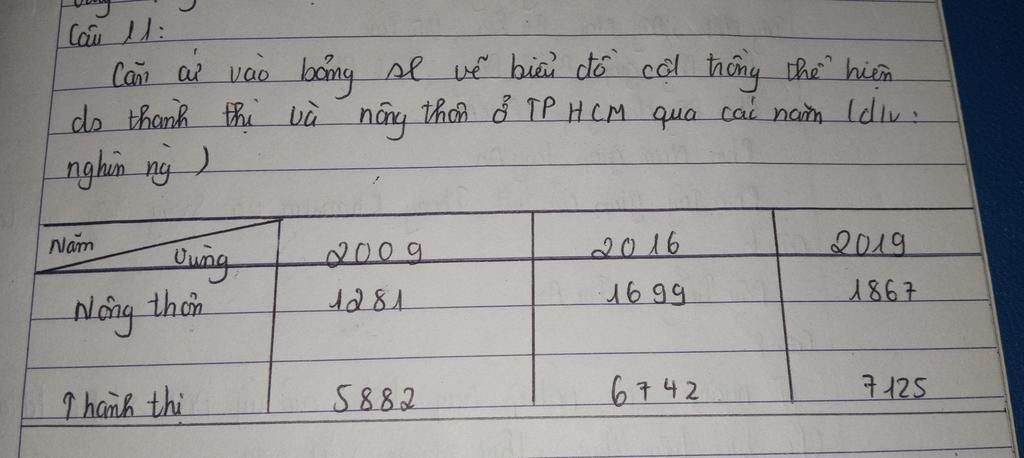 Câu 11:
Căn cứ vào bảng sl vẽ biểu đồ cột trồng thể hiện
ds thành thị và nông thôn ở TP HCM qua các năm (đ/v:
nghìn ng)
Năm Vùng 2009 2016 2019
Nông thôn 1281 1699 1867
Thành thị 5882 6742 7125